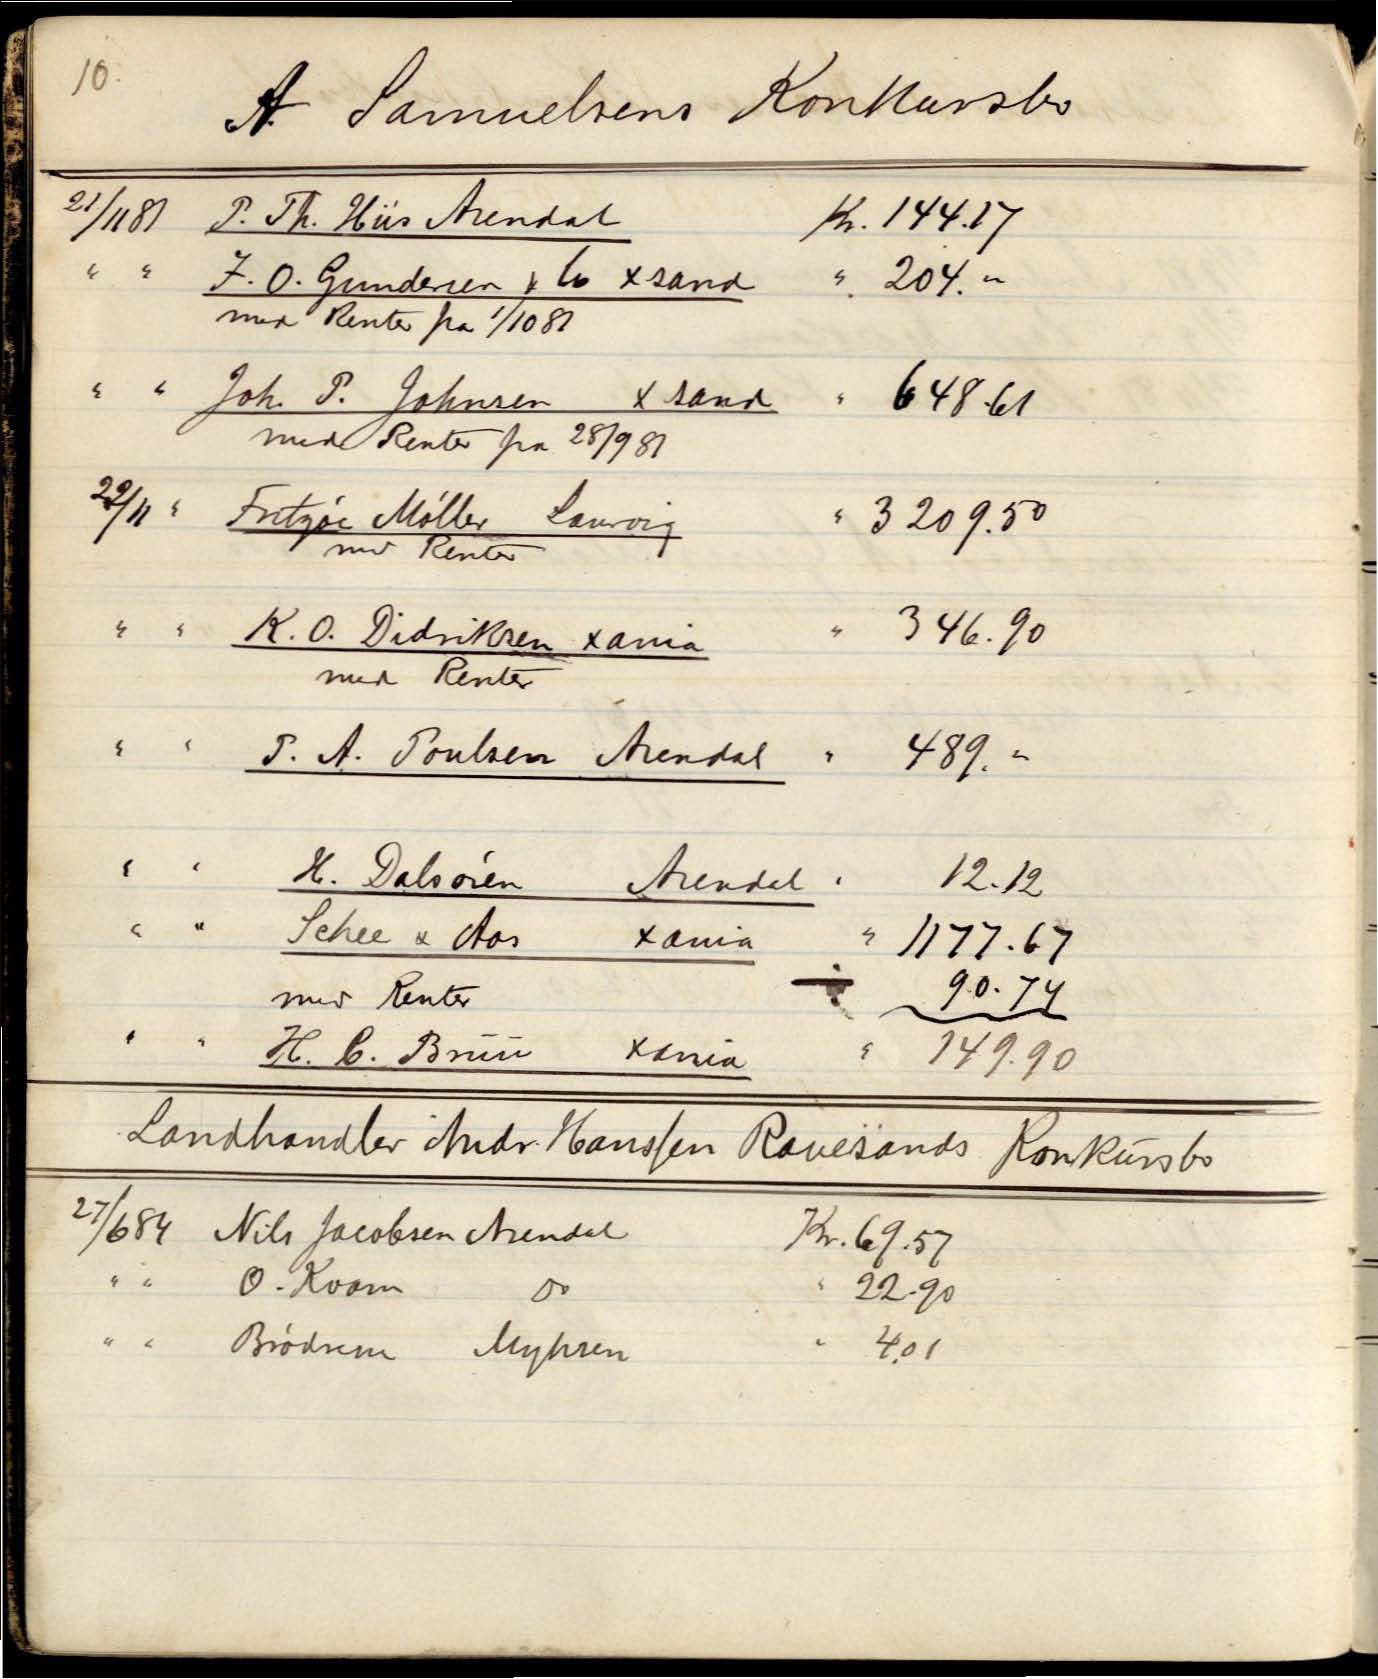 10.
A. Samuelsens Konkursbo
21/11 81 P. Th. Hiis Arendal Kr. 144.17
" " F. O. Gundersen & Co Xsand " 204. "
med Renter fra 1/10 81
" " Joh. P. Johnsen Xsand " 648.61
med Renter fra 28/9 81
22/11 " Fritzöe Möller Laurvig " 3209.50
med Renter
" " K. O. Didriksen Xania " 346.90
med Renter
" " P. A. Poulsen Arendal " 489. "
" " H. Dalsören Arendal " 12.12
" " Schee & Aas Xania " 1177.67
med Renter 90.74
" " H. C. Bruu Xania " 149.90
Landhandler Andr. Hanssen Ravesands Konkursbo
27/6 84 Nils Jacobsen Arendal Kr. 69.57
" " O. Kvam Do " 22.90
" " Brödrene Myhren " 4.01